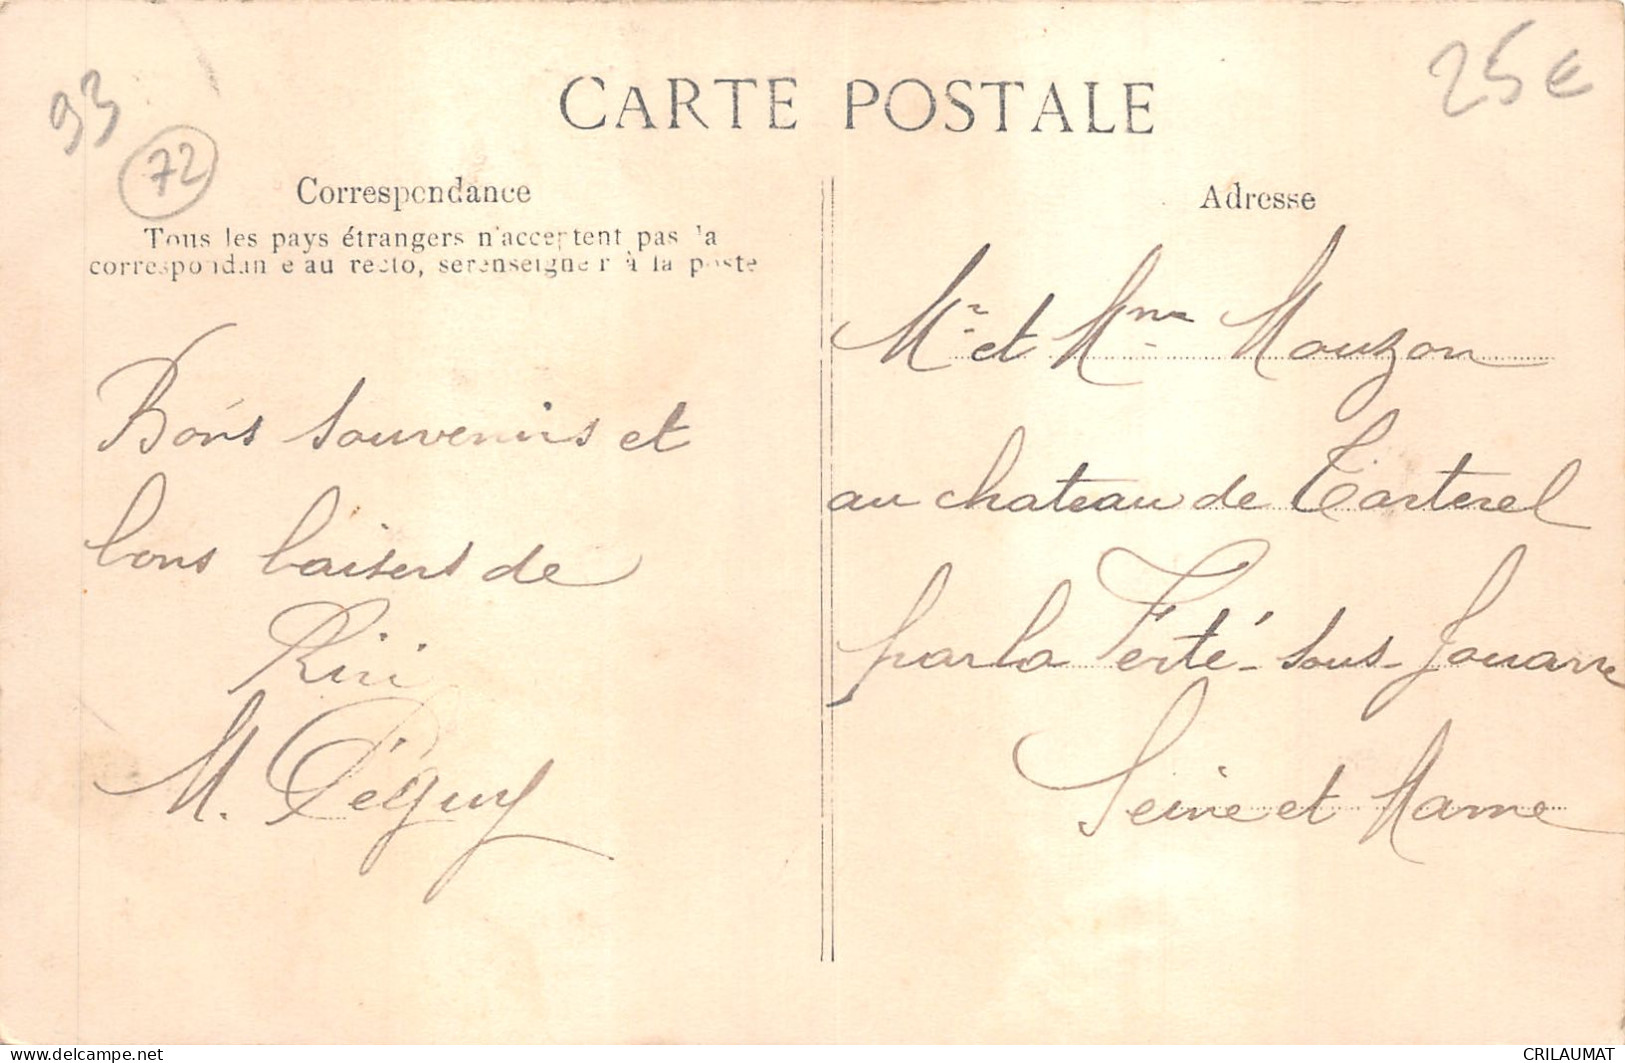 CARTE POSTALE
25€
93
72
Correspondance
Tous les pays étrangers n'acceptent pas la
correspondance au recto, se renseigner à la poste
Bons souvenirs et
bons baisers de
Riri
M. Péguy
Adresse
Mr et Mme Mouzon
au chateau de Tarterel
par la Ferté-sous-Jouarre
Seine et Marne
www.delcampe.net
CRILAUMAT